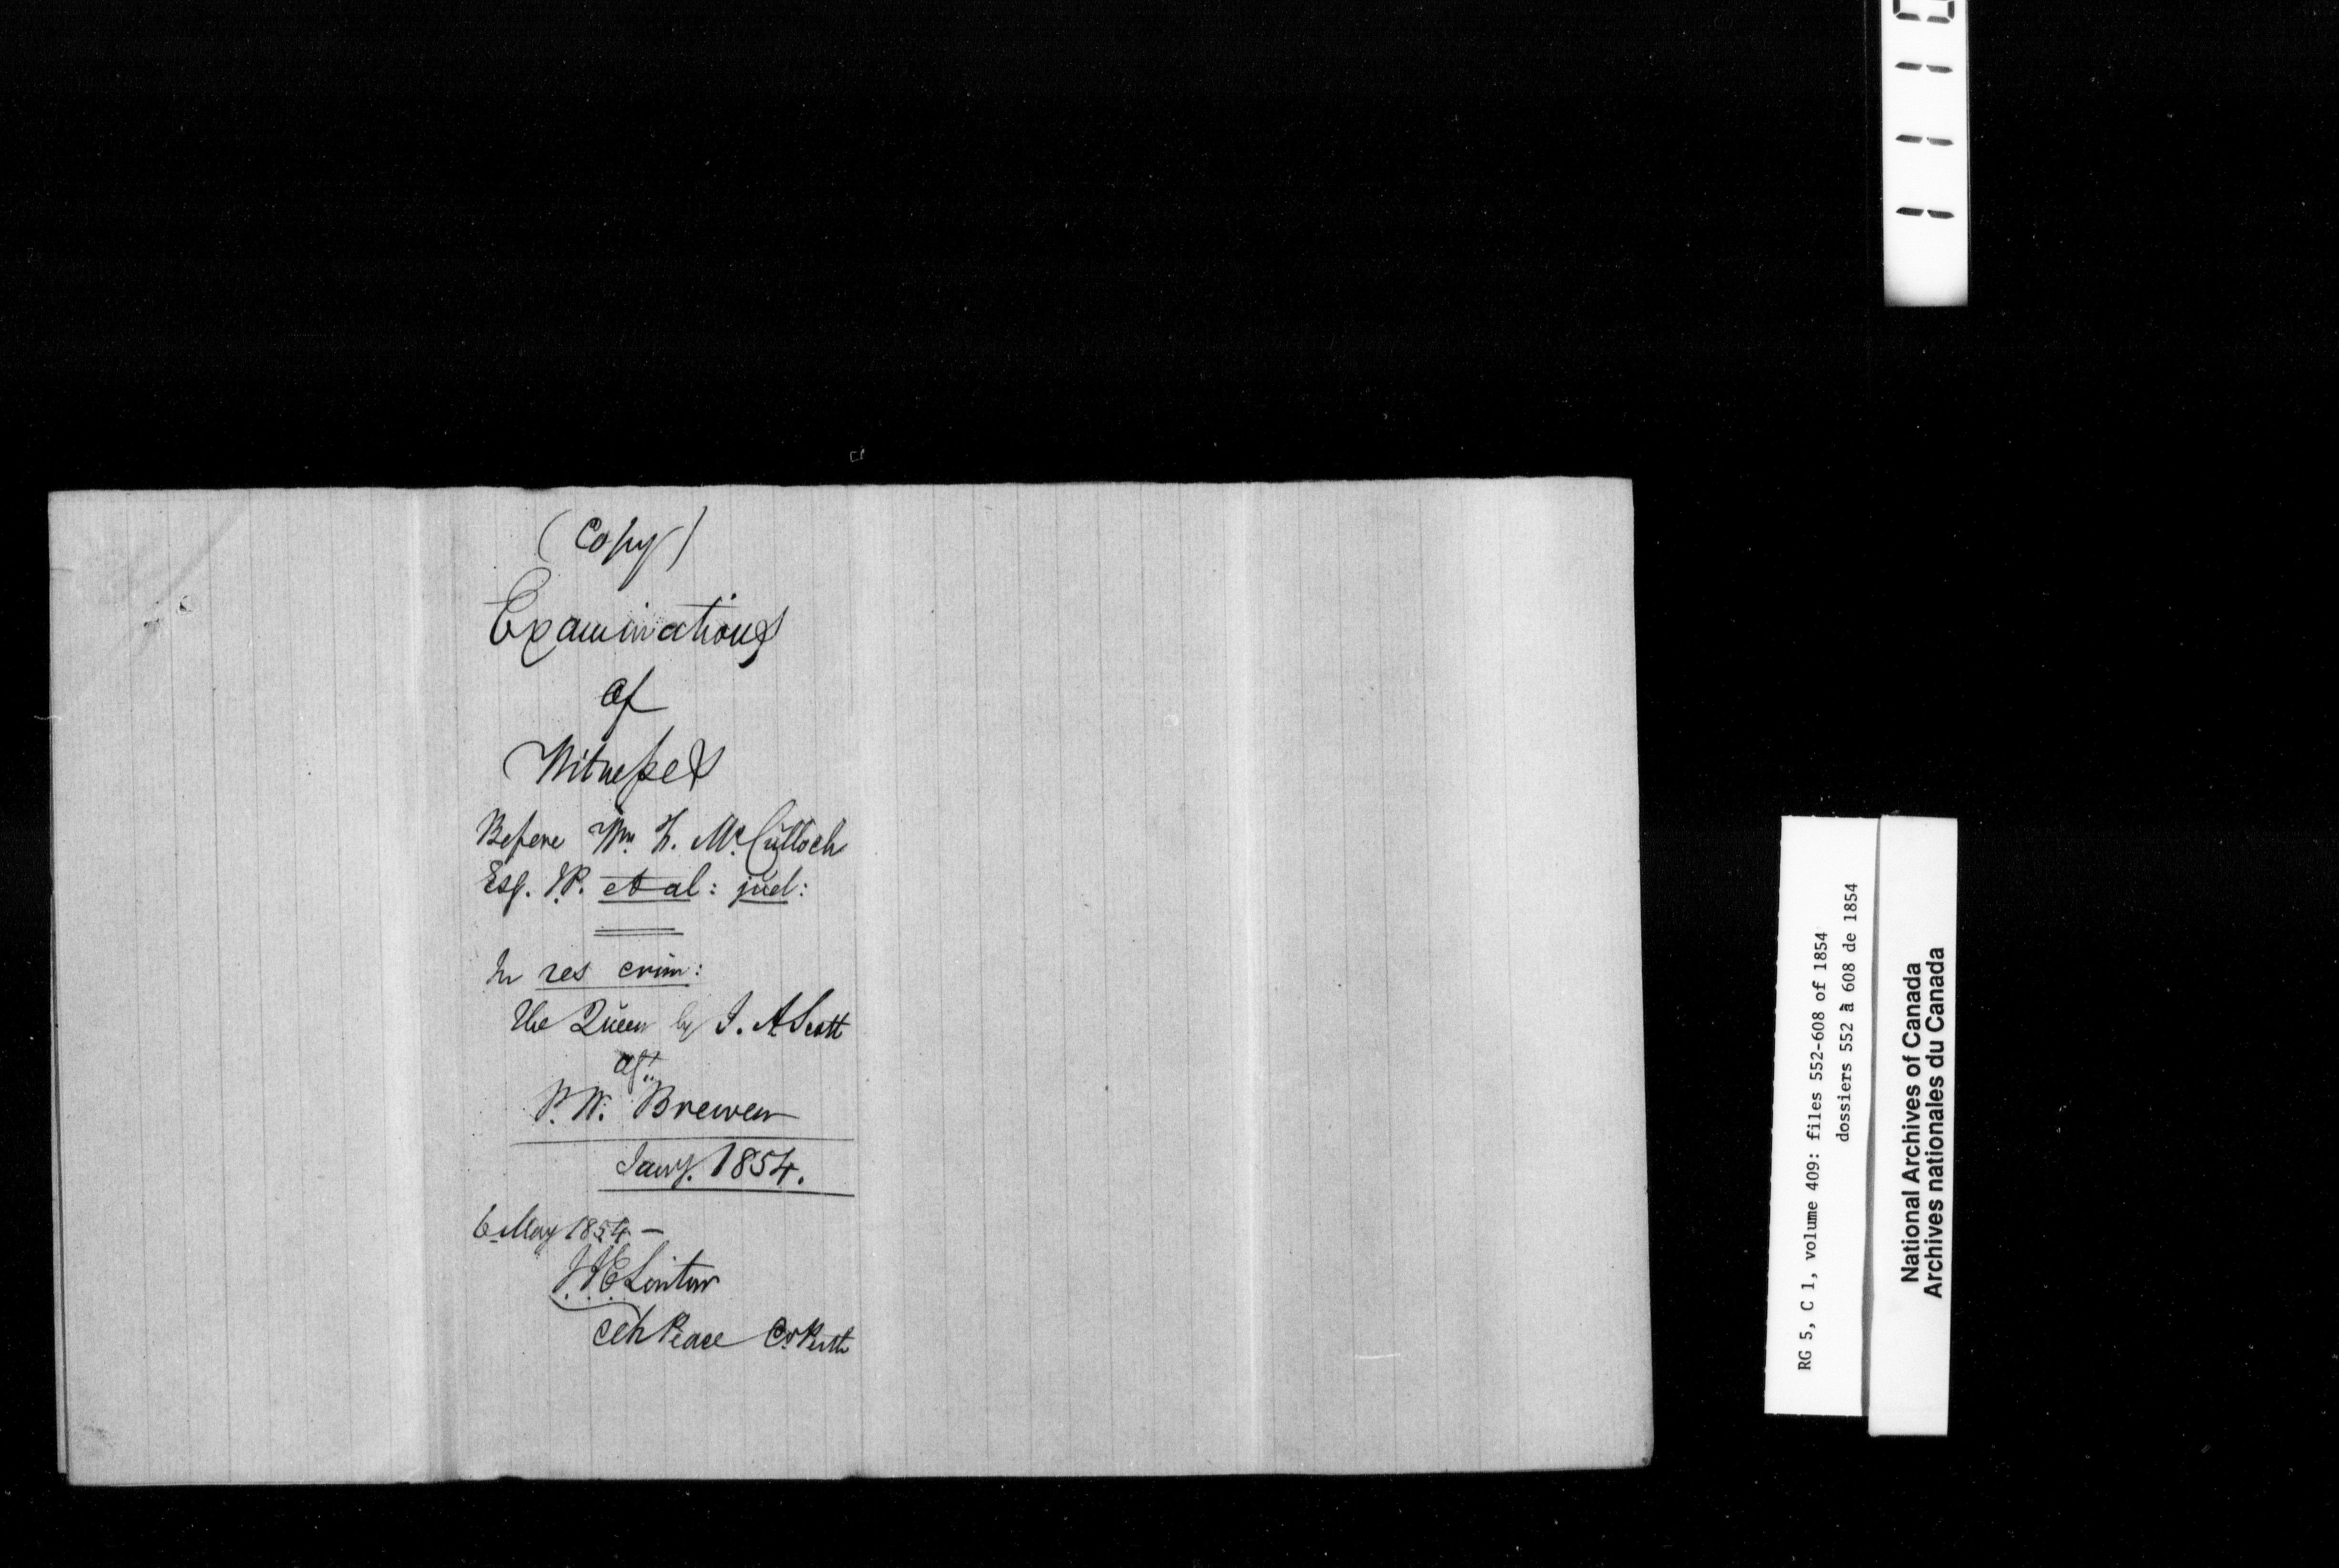 (Copy)
Examinations
of
Witnesses
Before Wm. F. McCulloch
Esq. J.P. et al: jud:
In res crim:
The Queen by J. A Scott
agt.
P. W. Brewer
Jany. 1854.
6 May 1854 —
J.J.E. Linton
Clk Peace Co. Perth
RG 5, C 1, volume 409: files 552-608 of 1854
dossiers 552 à 608 de 1854
National Archives of Canada
Archives nationales du Canada